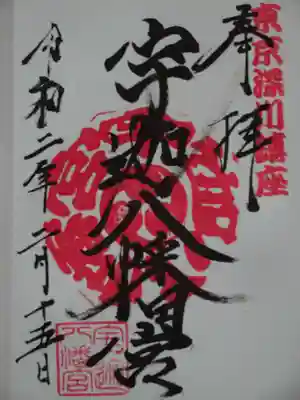 東京深川鎮座
奉拝
宇迦八幡宮
令和二年二月十五日
宇迦
八幡宮